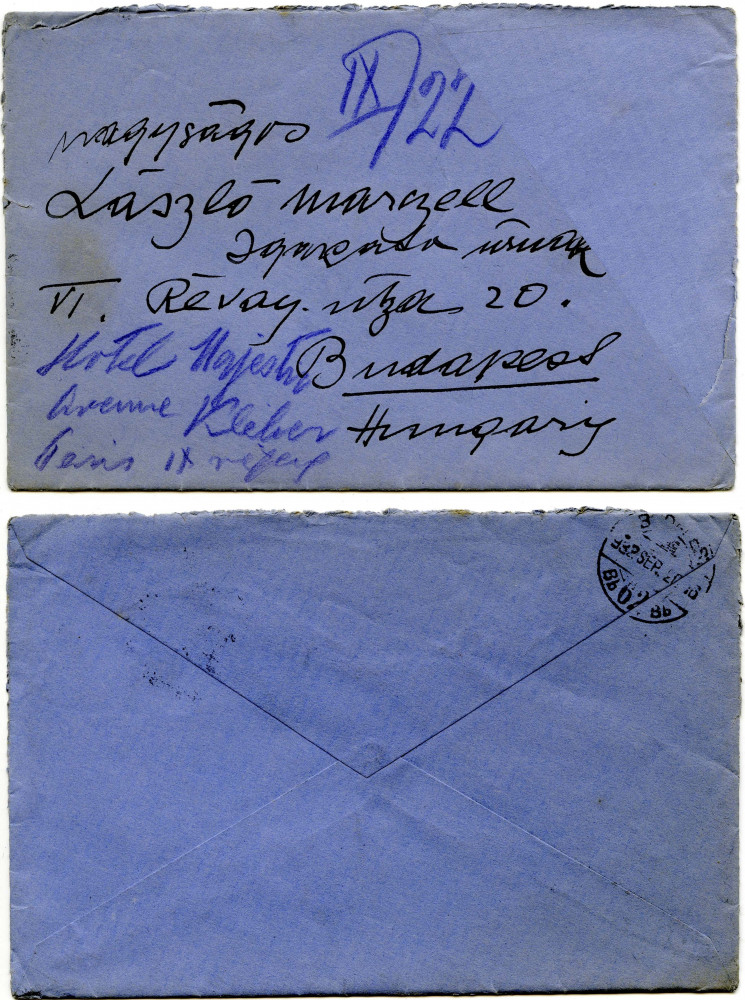 IX/22
nagyságos
László Marczell
Igazgató úrnak
VI. Révay utza 20.
Budapest
Hungary
Hotel Majestic
Avenue Kleber
Paris IX
932 SEP. 2
Bb 02 Bb